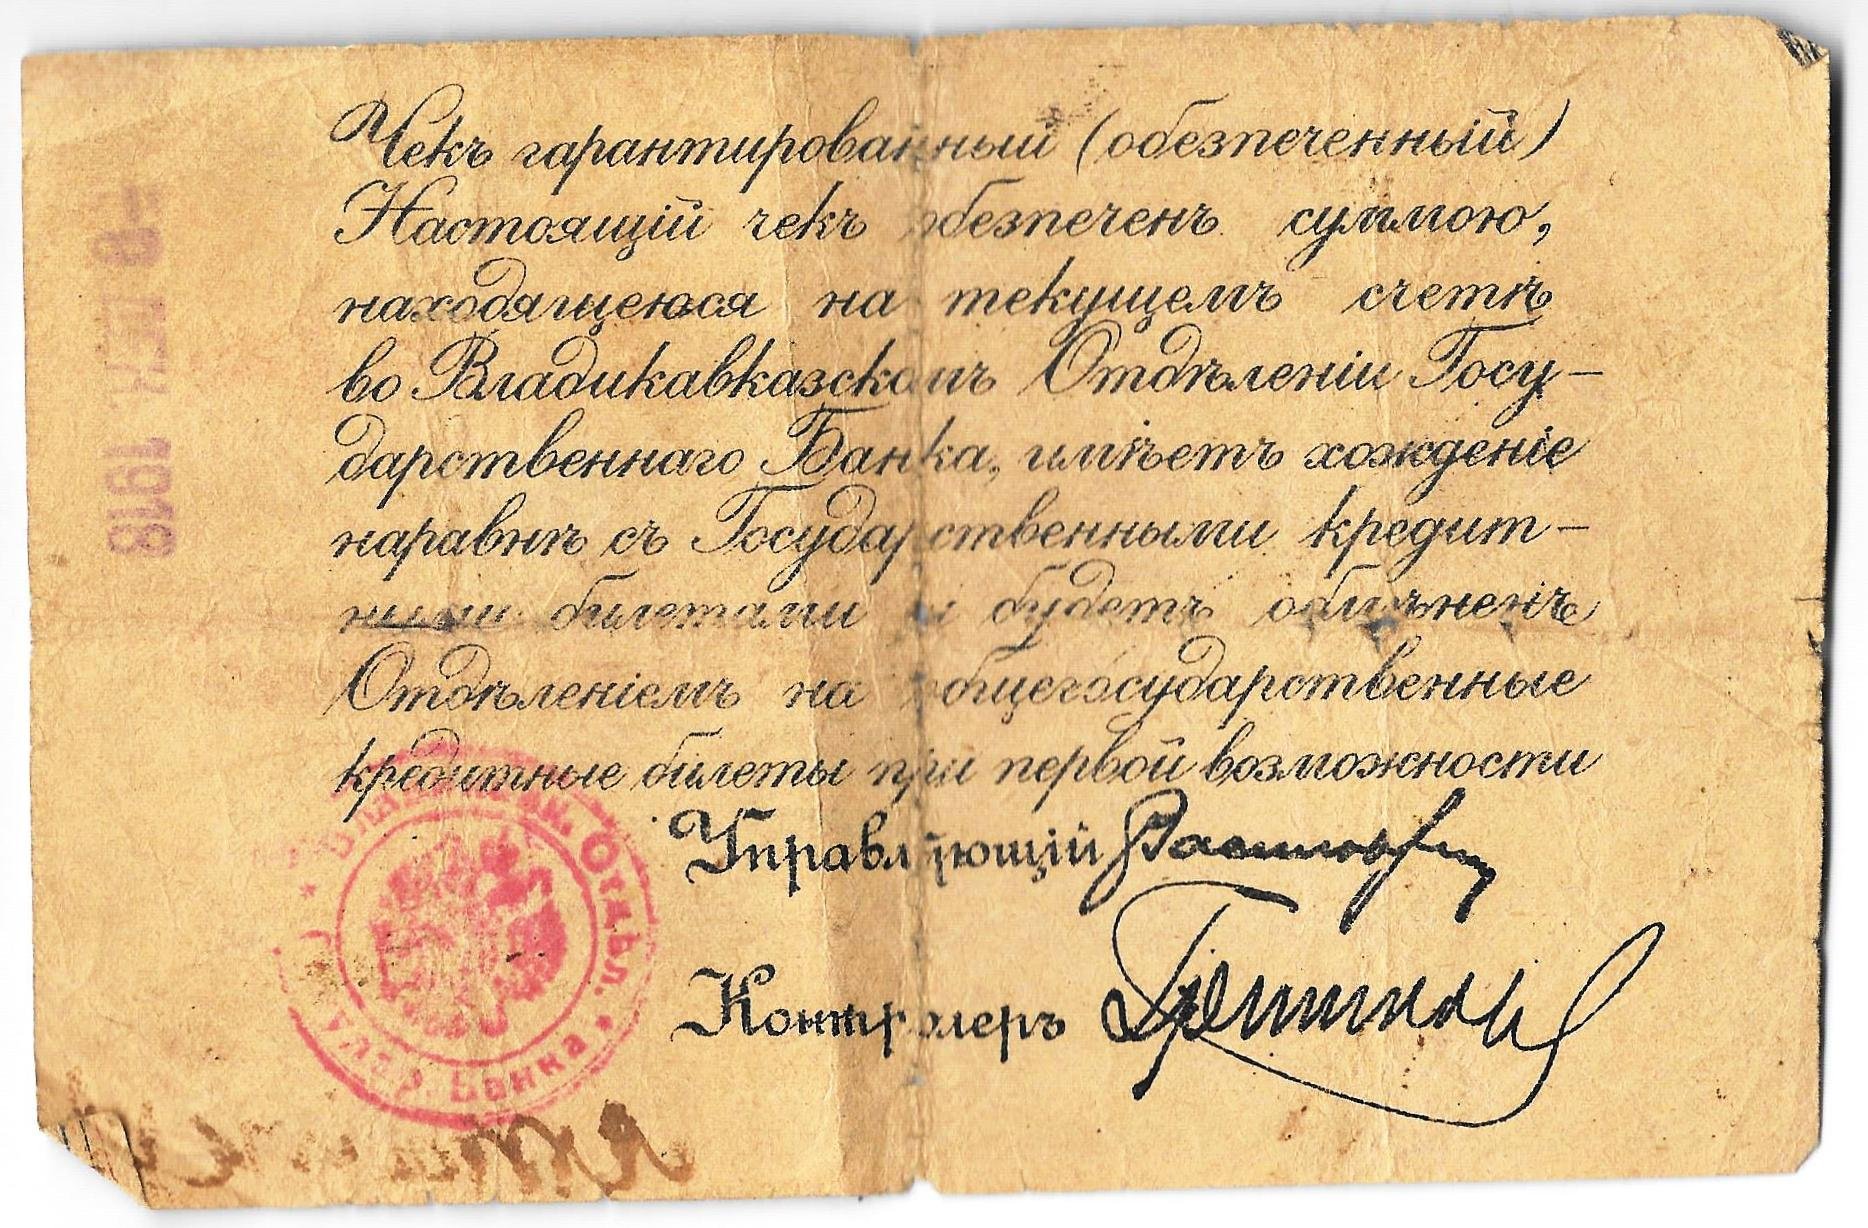 Чекъ гарантированный (обезпеченный)
Настоящій чекъ обезпеченъ суммою,
находящеюся на текущемъ счетѣ
во Владикавказскомъ Отдѣленіи Госу-
дарственнаго Банка, имѣетъ хожденіе
наравнѣ съ Государственными кредит-
ными билетами и будетъ обмѣненъ
Отдѣленіемъ на общегосударственные
кредитные билеты при первой возможности
Управляющій
Контролеръ
Отдѣл.
Банка
1918